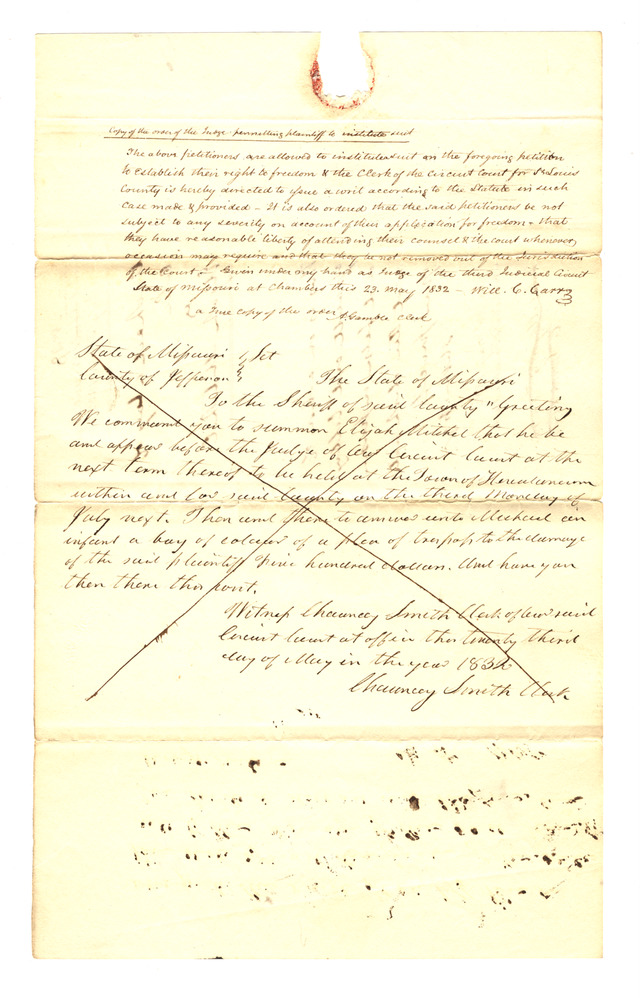 Copy of the order of the Judge permitting plaintiff to institute suit
The above petitioners are allowed to institute suit on the foregoing petition
to establish their right to freedom & the Clerk of the circuit court for St Louis
County is hereby directed to issue a writ according to the Statute in such
case made & provided – It is also ordered that the said petitioners be not
subject to any severity on account of their application for freedom – that
they have reasonable liberty of attending their counsel & the court whenever
occasion may require and that they be not removed out of the Jurisdiction
of the Court – Given under my hand as Judge of the third Judicial Circuit
State of Missouri at Chambers this 23. May 1832 – Will. C. Carr
a True copy of the order A Gamble Clerk
State of Missouri } Sct
County of Jefferson } The State of Missouri
To the Sheriff of said County " Greeting
We command you to summon Elijah Mitchel that he be
and appear before the Judge of our Circuit Court at the
next term thereof to be held at the Town of Herculaneum
within and for said County on the third Monday of
July next. Then and there to answer unto Michael an
infant a boy of colour of a plea of trespass to the damage
of the said plaintiff five hundred dollars. And have you
then there this writ.
Witness Chauncey Smith Clerk of our said
Circuit Court at office this twenty third
day of May in the year 1832
Chauncey Smith Clerk